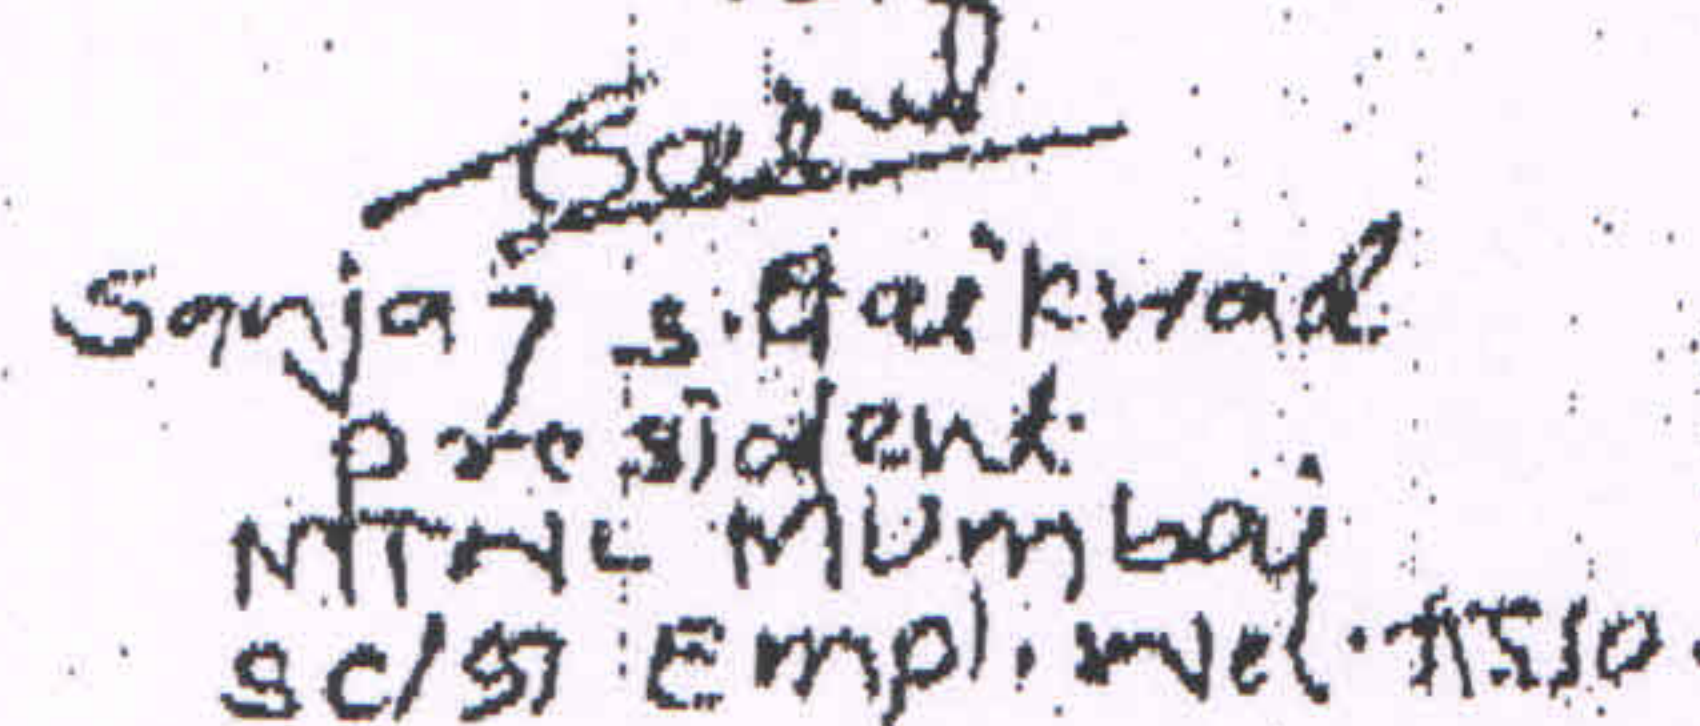 Sanjay S. Gaikwad
president
MTNL Mumbai
SC/ST Empl. Wel. Asso.